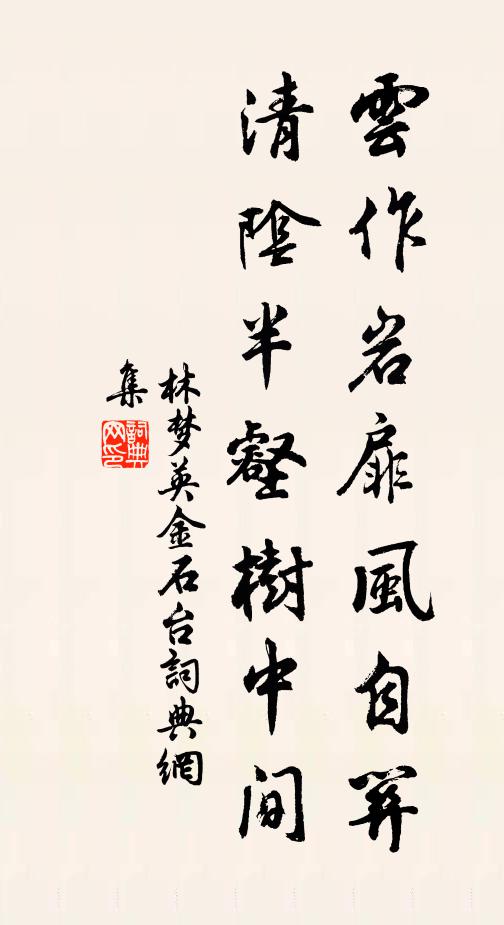 雲作岩扉風自關
清陰半壑樹中間
林梦英金石台詞典網
集
詞典网印